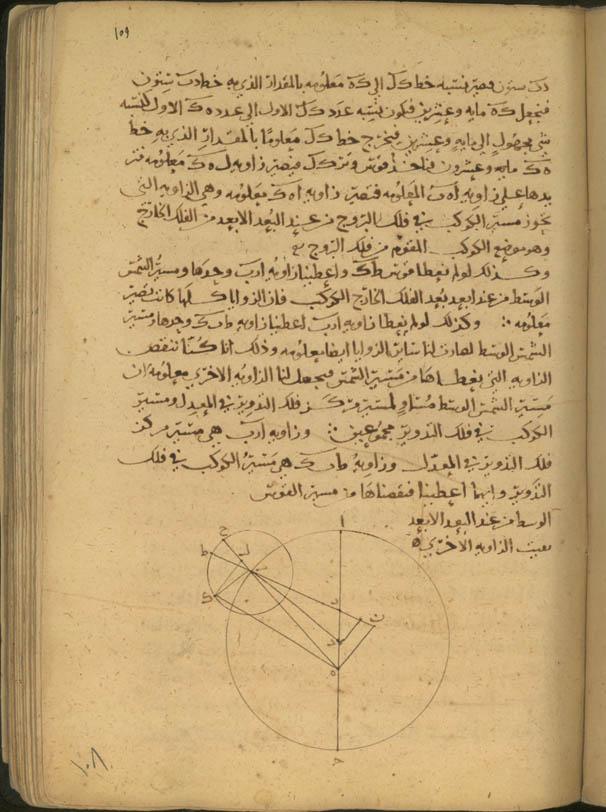 ١٥٩
دب ستون فتصير نسبة خط كل الى كه معلومه بالمقدار الذى به خط دب ستون
فنجعل كه مايه وعشرين فتكون نسبة عدد كل الاول الى عدد ه ك الاول كنسبة
شى مجهول الى مايه وعشرين فيخرج خط كل معلوما بالمقدار الذى به خط
ه ك مايه وعشرون فناخذ قوس وتر كل فتصير زاويه ل ه ك معلومه
يدها على زاويه اه ب المعلومه فتصير زاويه اه ك معلومه وهى الزاويه التى
يجوز مسير الكوكب فى فلك البروج من عند البعد الابعد من الفلك الخارج
وهو موضع الكوكب المقوم من فلك البروج
وكذلك لو لم نعطا قوس ط ك واعطينا زاويه ادب وحدها ومسير الشمس
الوسط من عند ابعد بعد الفلك الخارج الكوكب فان الزوايا كلها كانت تصير
معلومه وكذلك لو لم نعطا زاويه ادب اعطينا زاويه ط ب ك وحدها ومسير
الشمس الوسط لصارت لنا ساير الزوايا ايضا معلومه وذلك انا كنا ننقص
الزاويه التى نعطاها من مسير الشمس فيحصل لنا الزاويه الاخرى معلومه لان
مسير الشمس الوسط مساو لمسير مركز فلك التدوير فى المعدل ومسير
الكوكب فى فلك التدوير مجموعين وزاويه ادب هى مسير مركز
فلك التدوير فى المعدل وزاويه ط ب ك هى مسير الكوكب فى فلك
التدوير وايهما اعطينا فنقصناها من مسير الشمس
الوسط من عند البعد الابعد
بقيت الزاويه الاخرى
ا
ح
ط
ل
ب
ك
د
ن
ه
ج
١٠٨